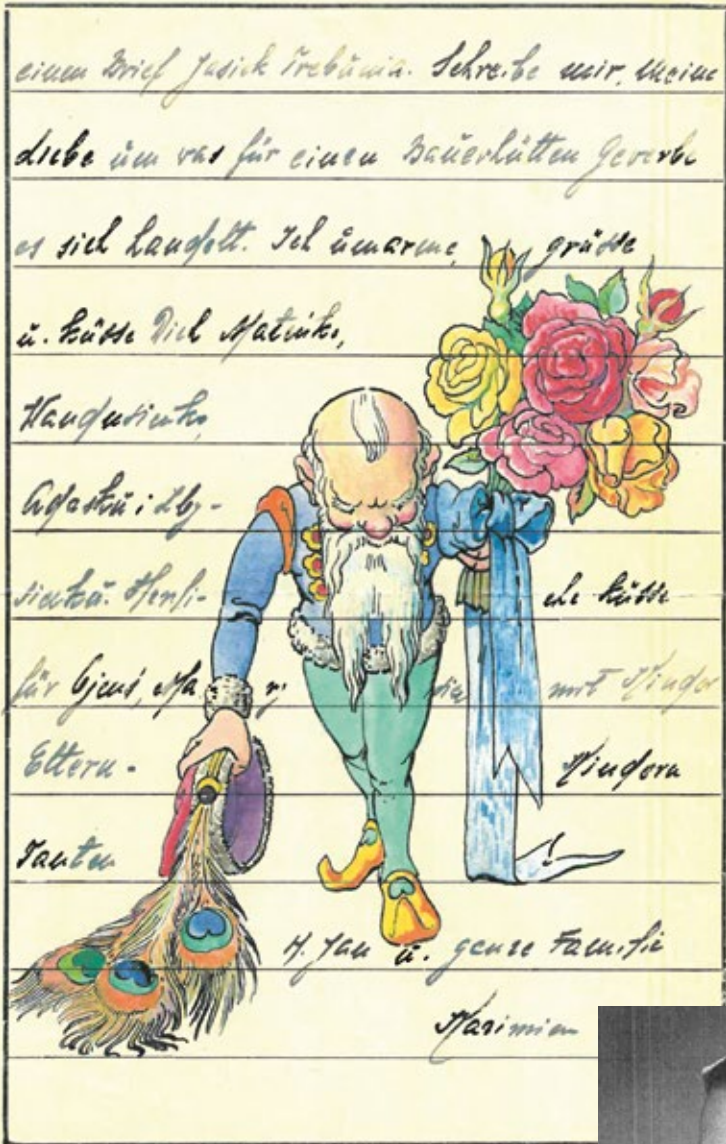 einen Brief Jasick Trebunia. Schreibe mir, meine
Liebe um was für einen Bauerhütten Gewerbe
es sich handelt. Ich umarme, grüsse
u. küsse Dich Matinko,
Wandusinko,
Adasku i Zby-
sinku. Herzli- che küsse
für mit Kinder
Eltern - Kindern
Tanten !
H. Jan u. ganze Familie